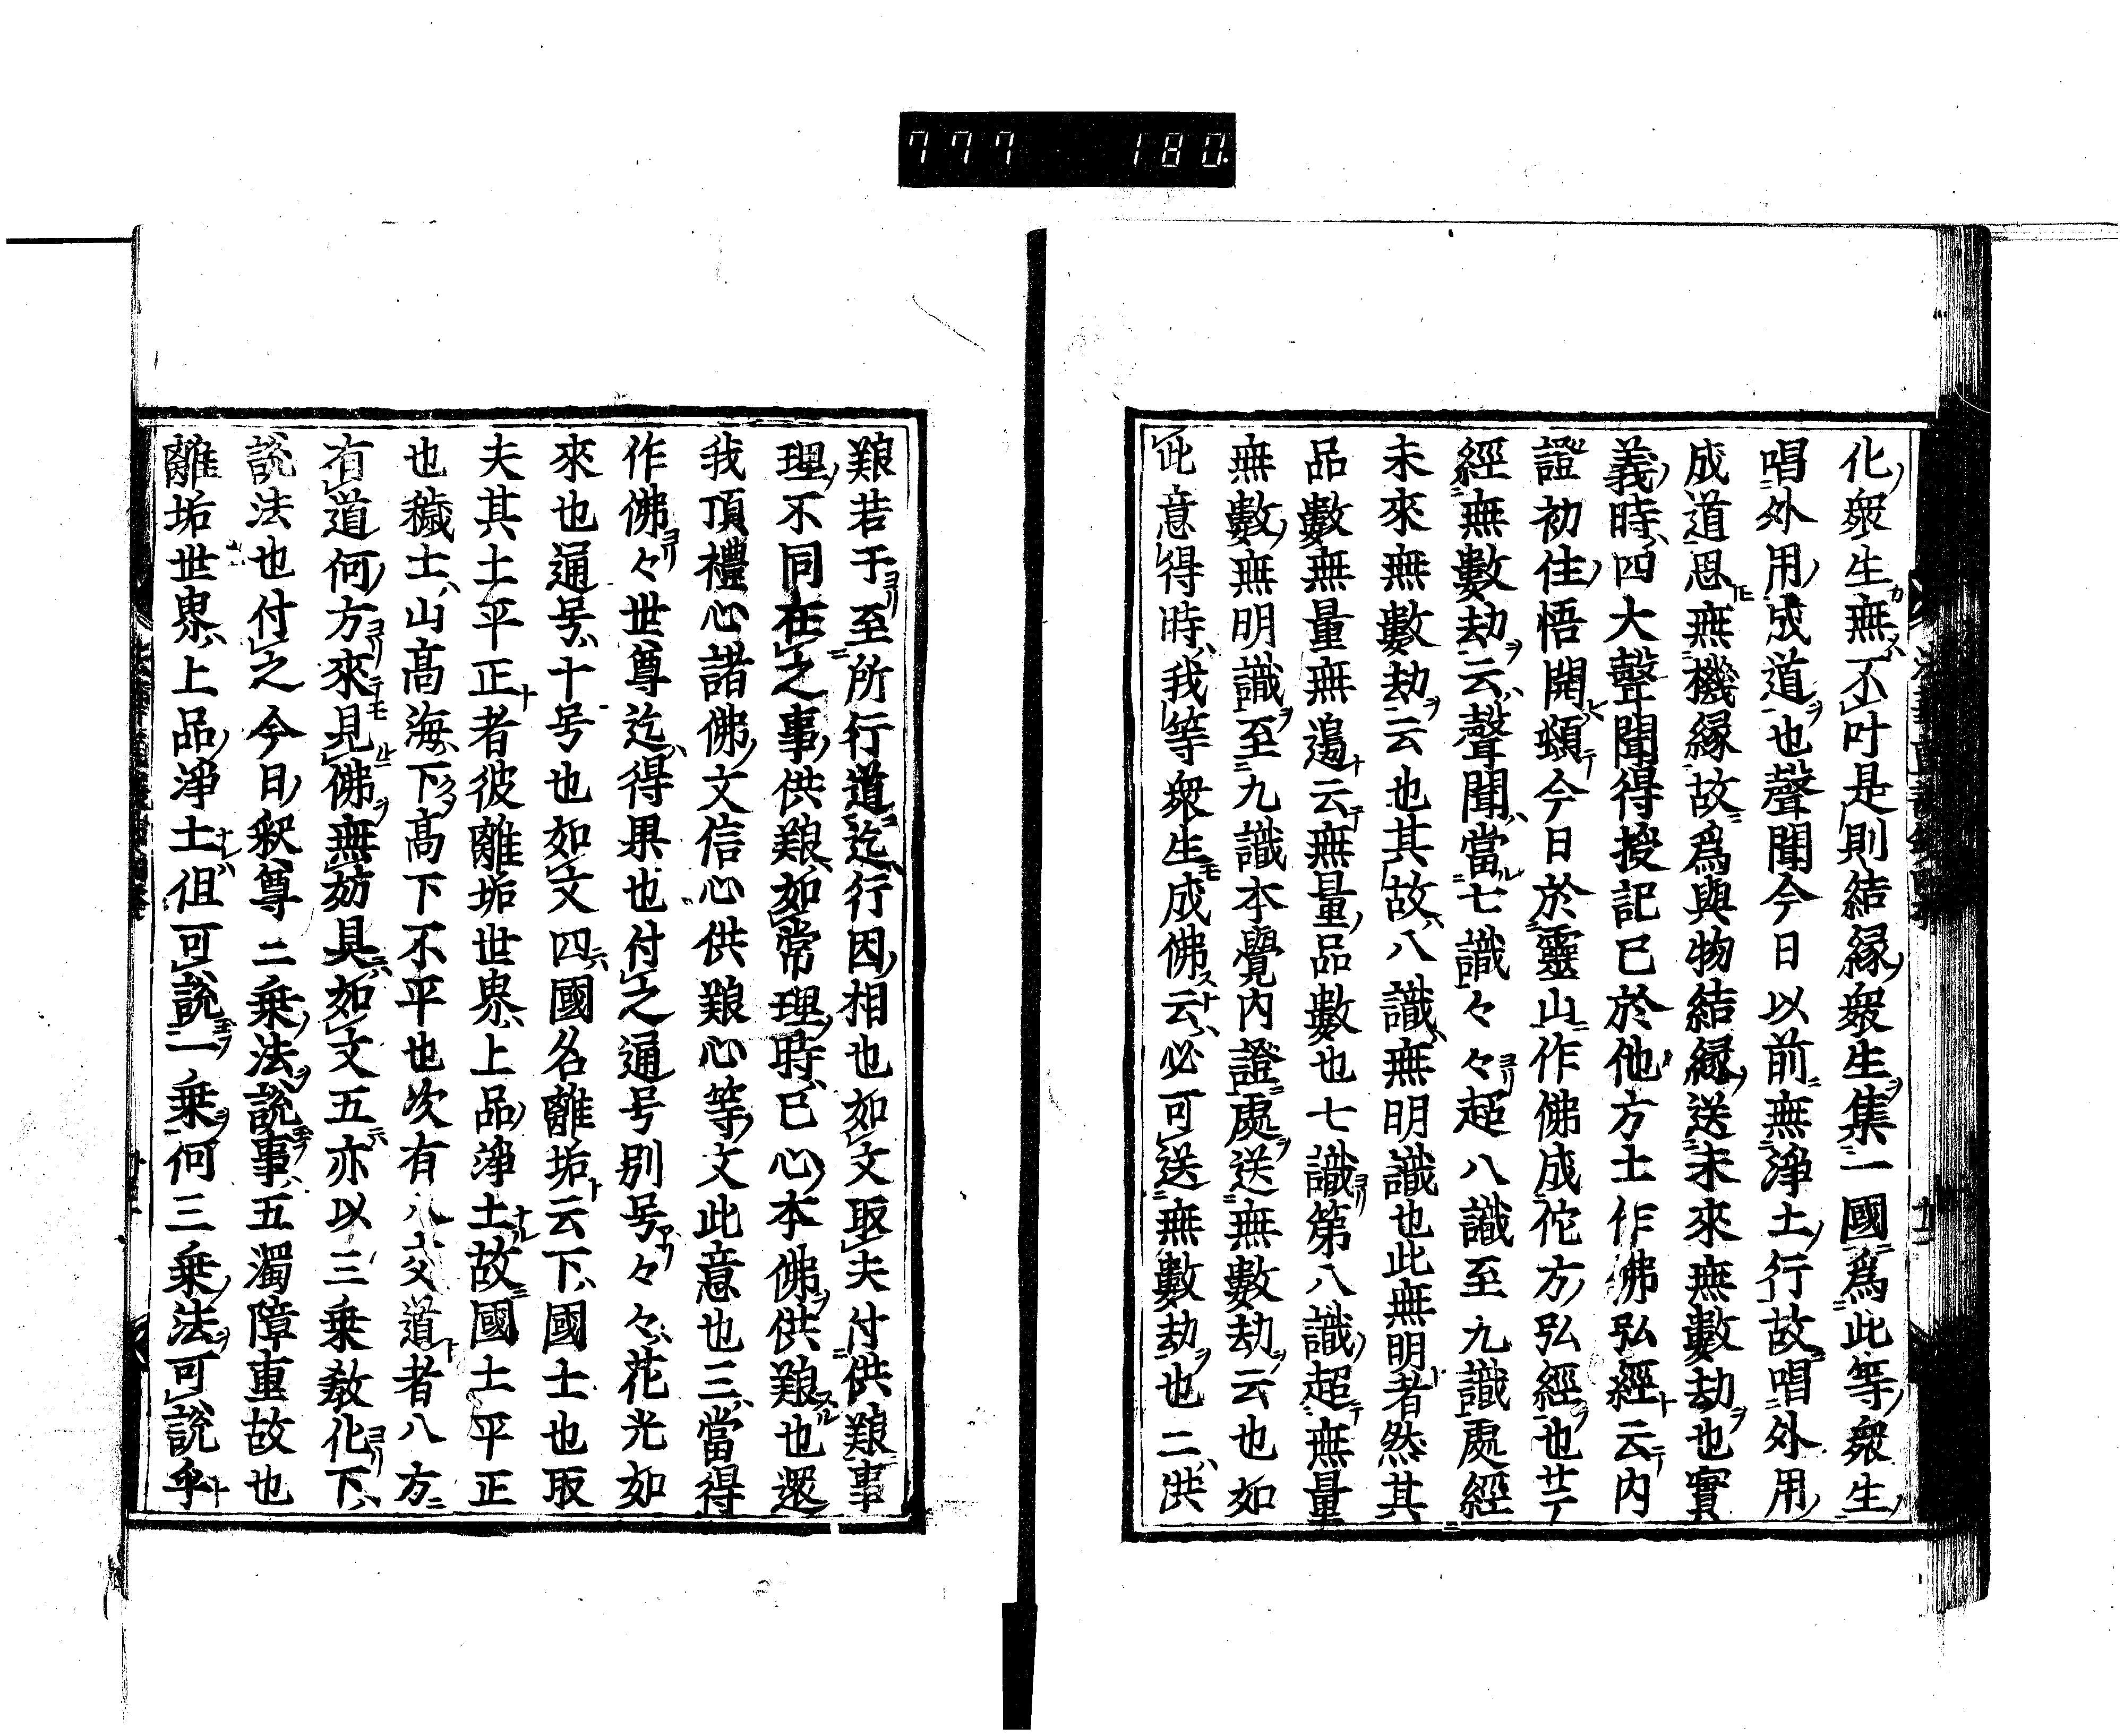 777 180.
化衆生無不叶是則結縁衆生集一國爲此等衆生
唱外用成道也聲聞今日以前無淨土行故唱外用
成道思無機縁故爲與物結縁送未來無數劫也實
義時四大聲聞得授記已於他方土作佛弘經云内
證初住悟開頭今日於靈山作佛成佗方弘經也廿一
經無數劫云聲聞當七識々々超八識至九識處經
未來無數劫云也其故八識無明識也此無明者然其
品數無量無邊云無量品數也七識第八識超無量
無數無明識至九識本覺内證處送無數劫云也如
此意得時我等衆生成佛云必可送無數劫也二供
艱若于至所行道迄行因相也如文取夫付供艱事
理不同在之事供艱如常理時已心本佛供艱也還
我頂禮心諸佛文信心供艱心等文此意也三當得
作佛々世尊迄得果也付之通号別号々々花光如
來也通号十号也如文四國名離垢云下國土也取
夫其土平正者彼離垢世界上品淨土故國土平正
也穢土山高海下高下不平也次有八交道者八方
有道何方來見佛無妨具如文五亦以三乗教化下
説法也付之今日釈尊二乗法説事五濁障重故也
離垢世界上品淨土但可説一乗何三乗法可説乎